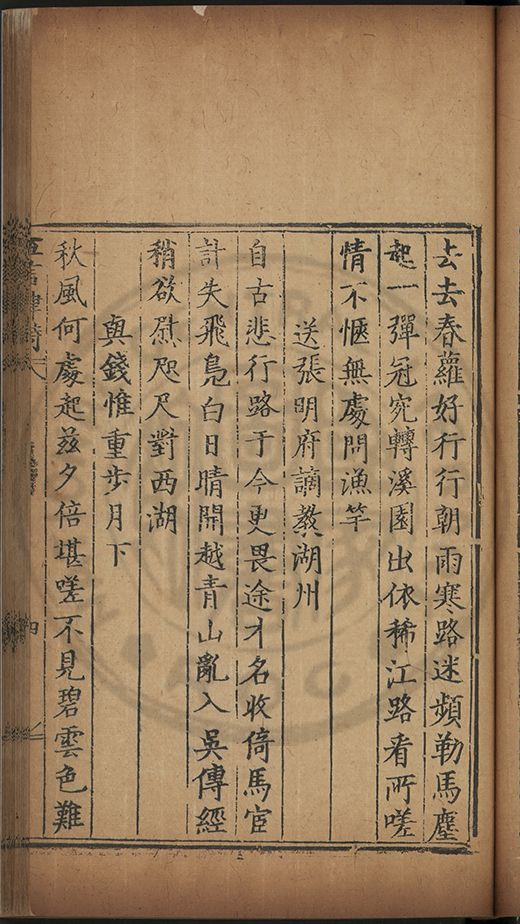 去去春蘿好行行朝雨寒路迷頻勒馬塵
起一彈冠宛轉溪園出依稀江路看所嗟
情不愜無處問漁竿
送張明府謫教湖州
自古悲行路于今更畏途才名收倚馬宦
計失飛鳧白日晴開越青山亂入吳傳經
稍欲慰咫尺對西湖
與錢惟重步月下
秋風何處起茲夕倍堪嗟不見碧雲色難
五言律詩
四